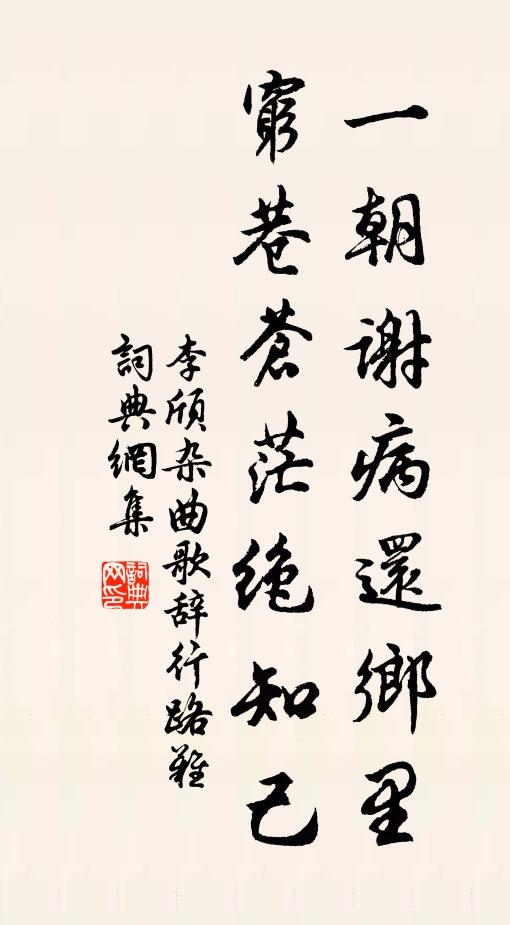 一朝謝病還鄉里
窮巷蒼茫絶知己
李頎杂曲歌辞行路難
詞典網集
詞典網印